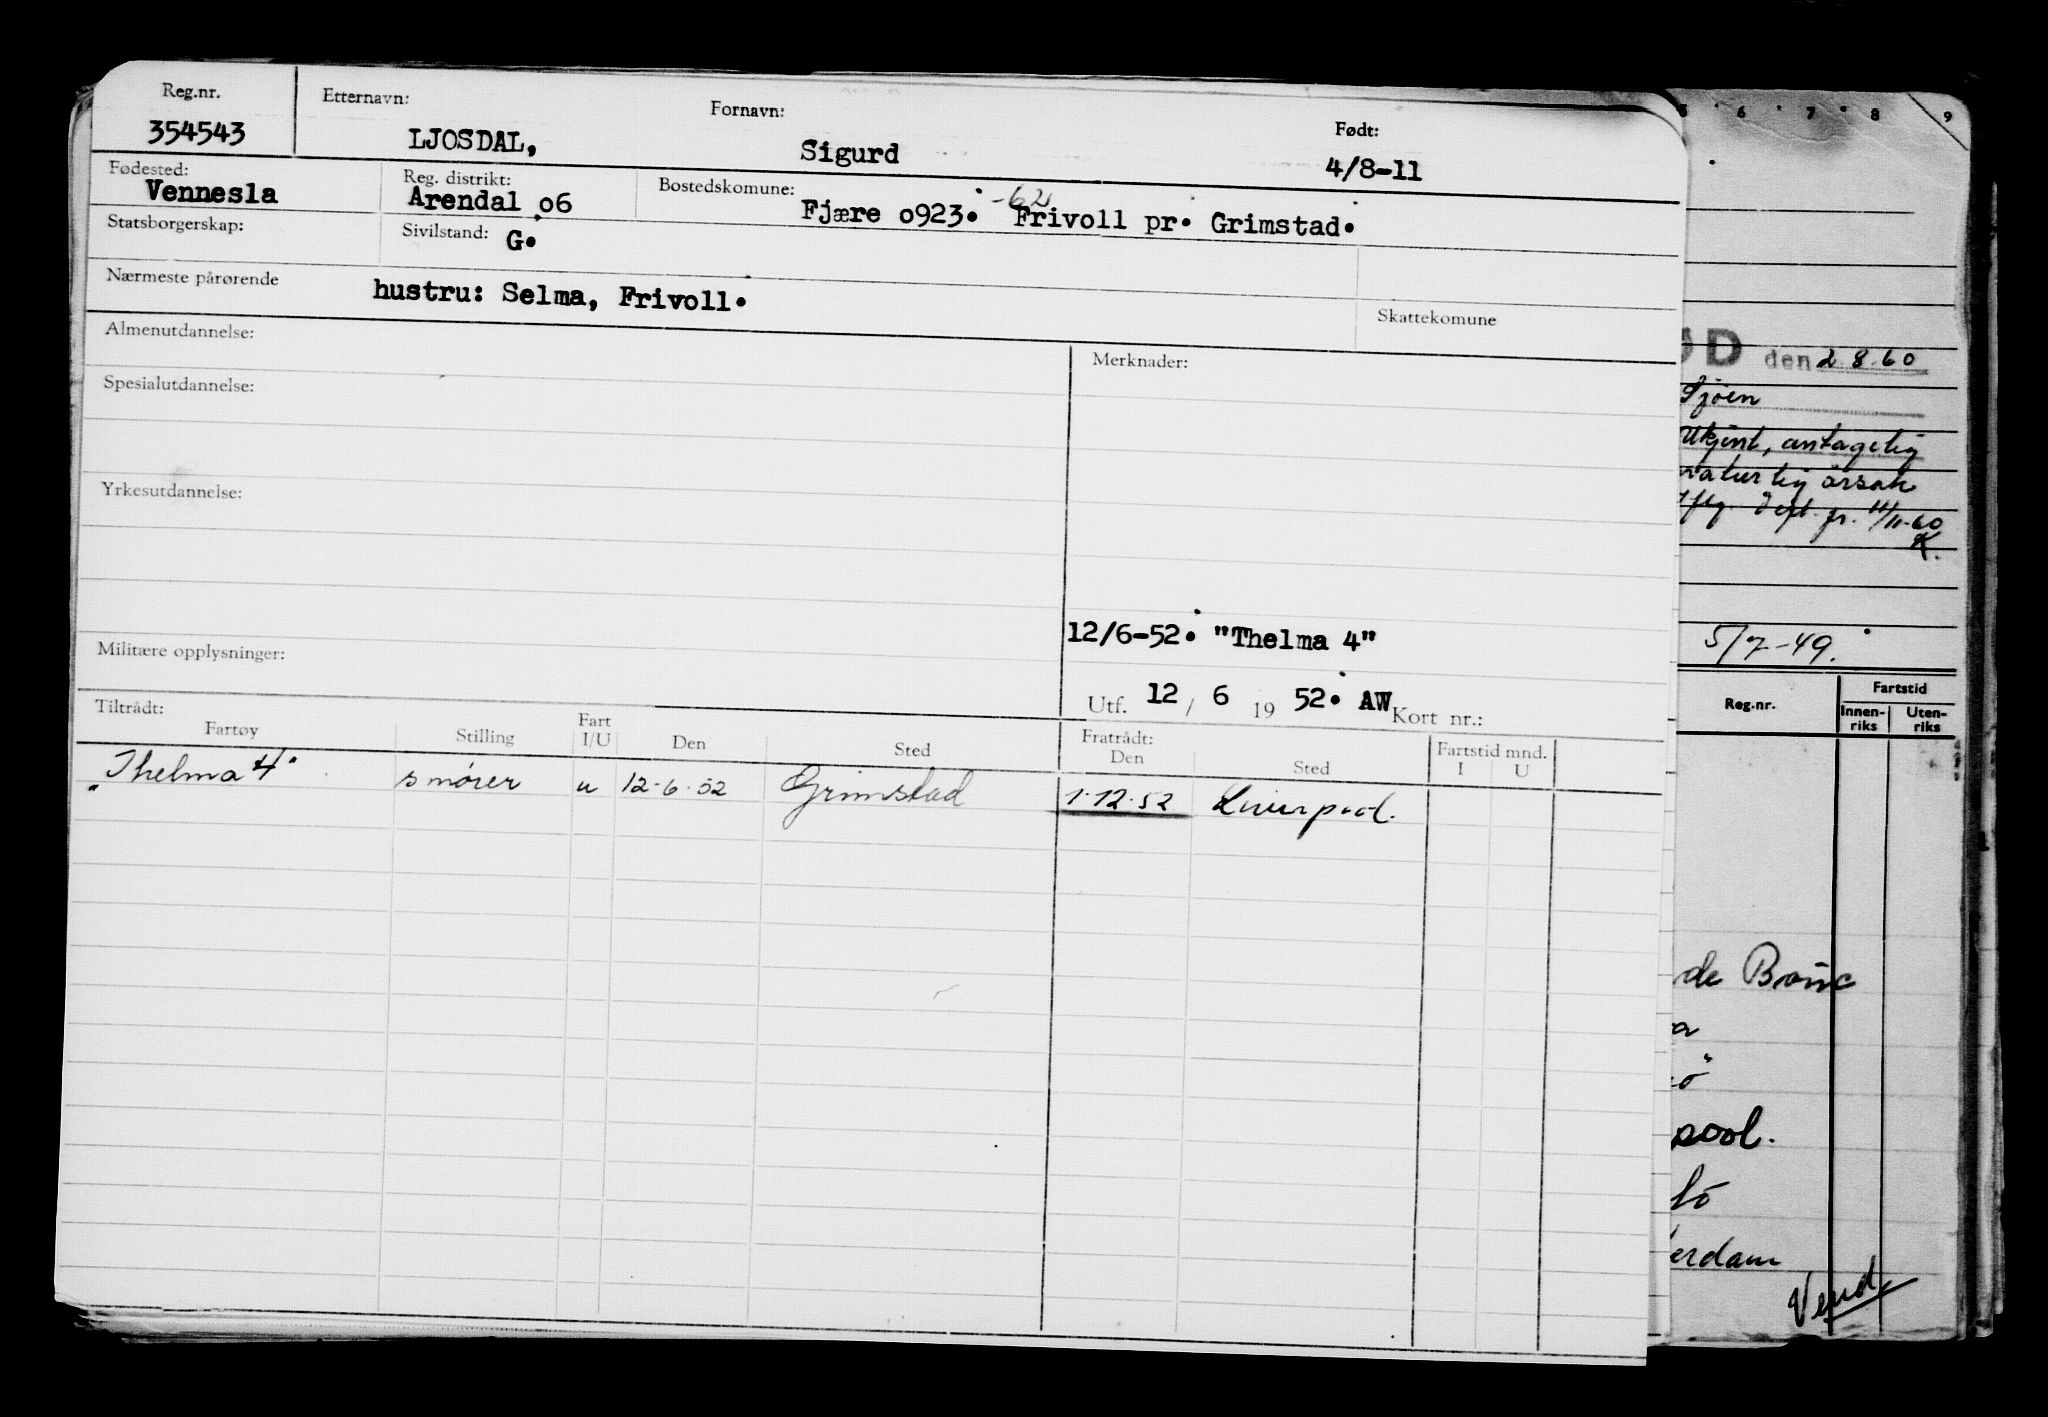 Reg.nr. Etternavn: Fornavn: Født:
354543 LJOSDAL, Sigurd 4/8-11
Fødested: Reg. distrikt: Bostedskomune: -62
Vennesla Arendal 06 Fjære 0923. Frivoll pr. Grimstad.
Statsborgerskap: Sivilstand: G.
Nærmeste pårørende hustru: Selma, Frivoll.
Skattekomune
Almenutdannelse: Merknader:
Spesialutdannelse:
Yrkesutdannelse:
12/6-52. "Thelma 4"
Militære opplysninger:
Utf. 12 / 6 19 52. AW Kort nr.:
Tiltrådt: Fratrådt:
Fartøy Stilling Fart I/U Den Sted Den Sted Fartstid mnd. I U
"Thelma 4" smører u 12-6-52 Grimstad 1-12-52 Liverpool.
5 6 7 8 9
ØD den 2 8.60
Sjøen
Ukjent, antagelig
naturlig årsak
dept. pr. 11/11-60
K.
5/7-49.
Reg.nr. Fartstid
Innen-riks Uten-riks
de
pool.
erdam
Vend